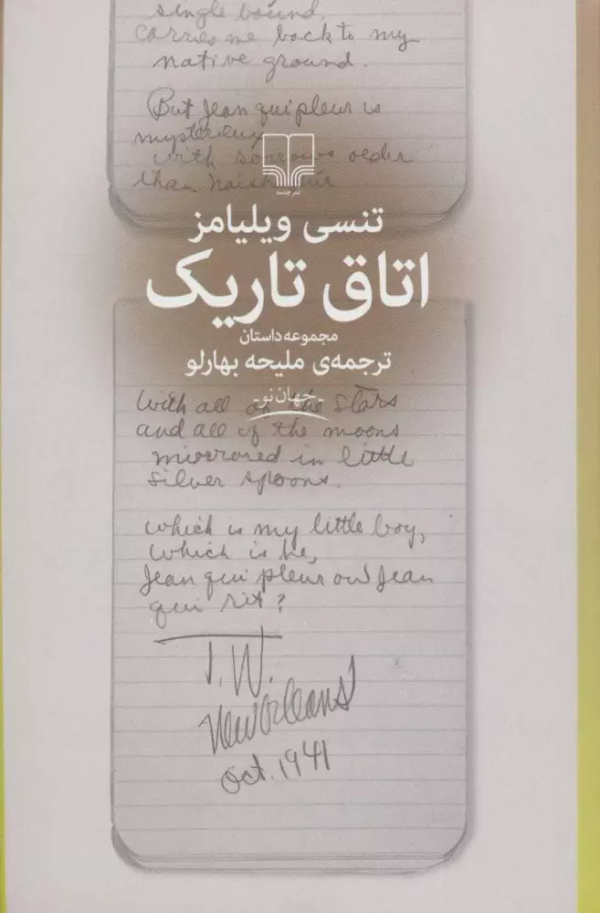 single bound,
Carries me back to my
native ground.
But Jean qui pleur is
mysterieux
with sorrows older
than
نشر چشمه
تنسی ویلیامز
اتاق تاریک
مجموعه داستان
ترجمه‌ی ملیحه بهارلو
ـ جهان نو ـ
With all of the stars
and all of the moons
mirrored in little
silver spoons.
which is my little boy,
which is he,
Jean qui pleur ou Jean
qui rit?
T.W.
New Orleans
Oct. 1941